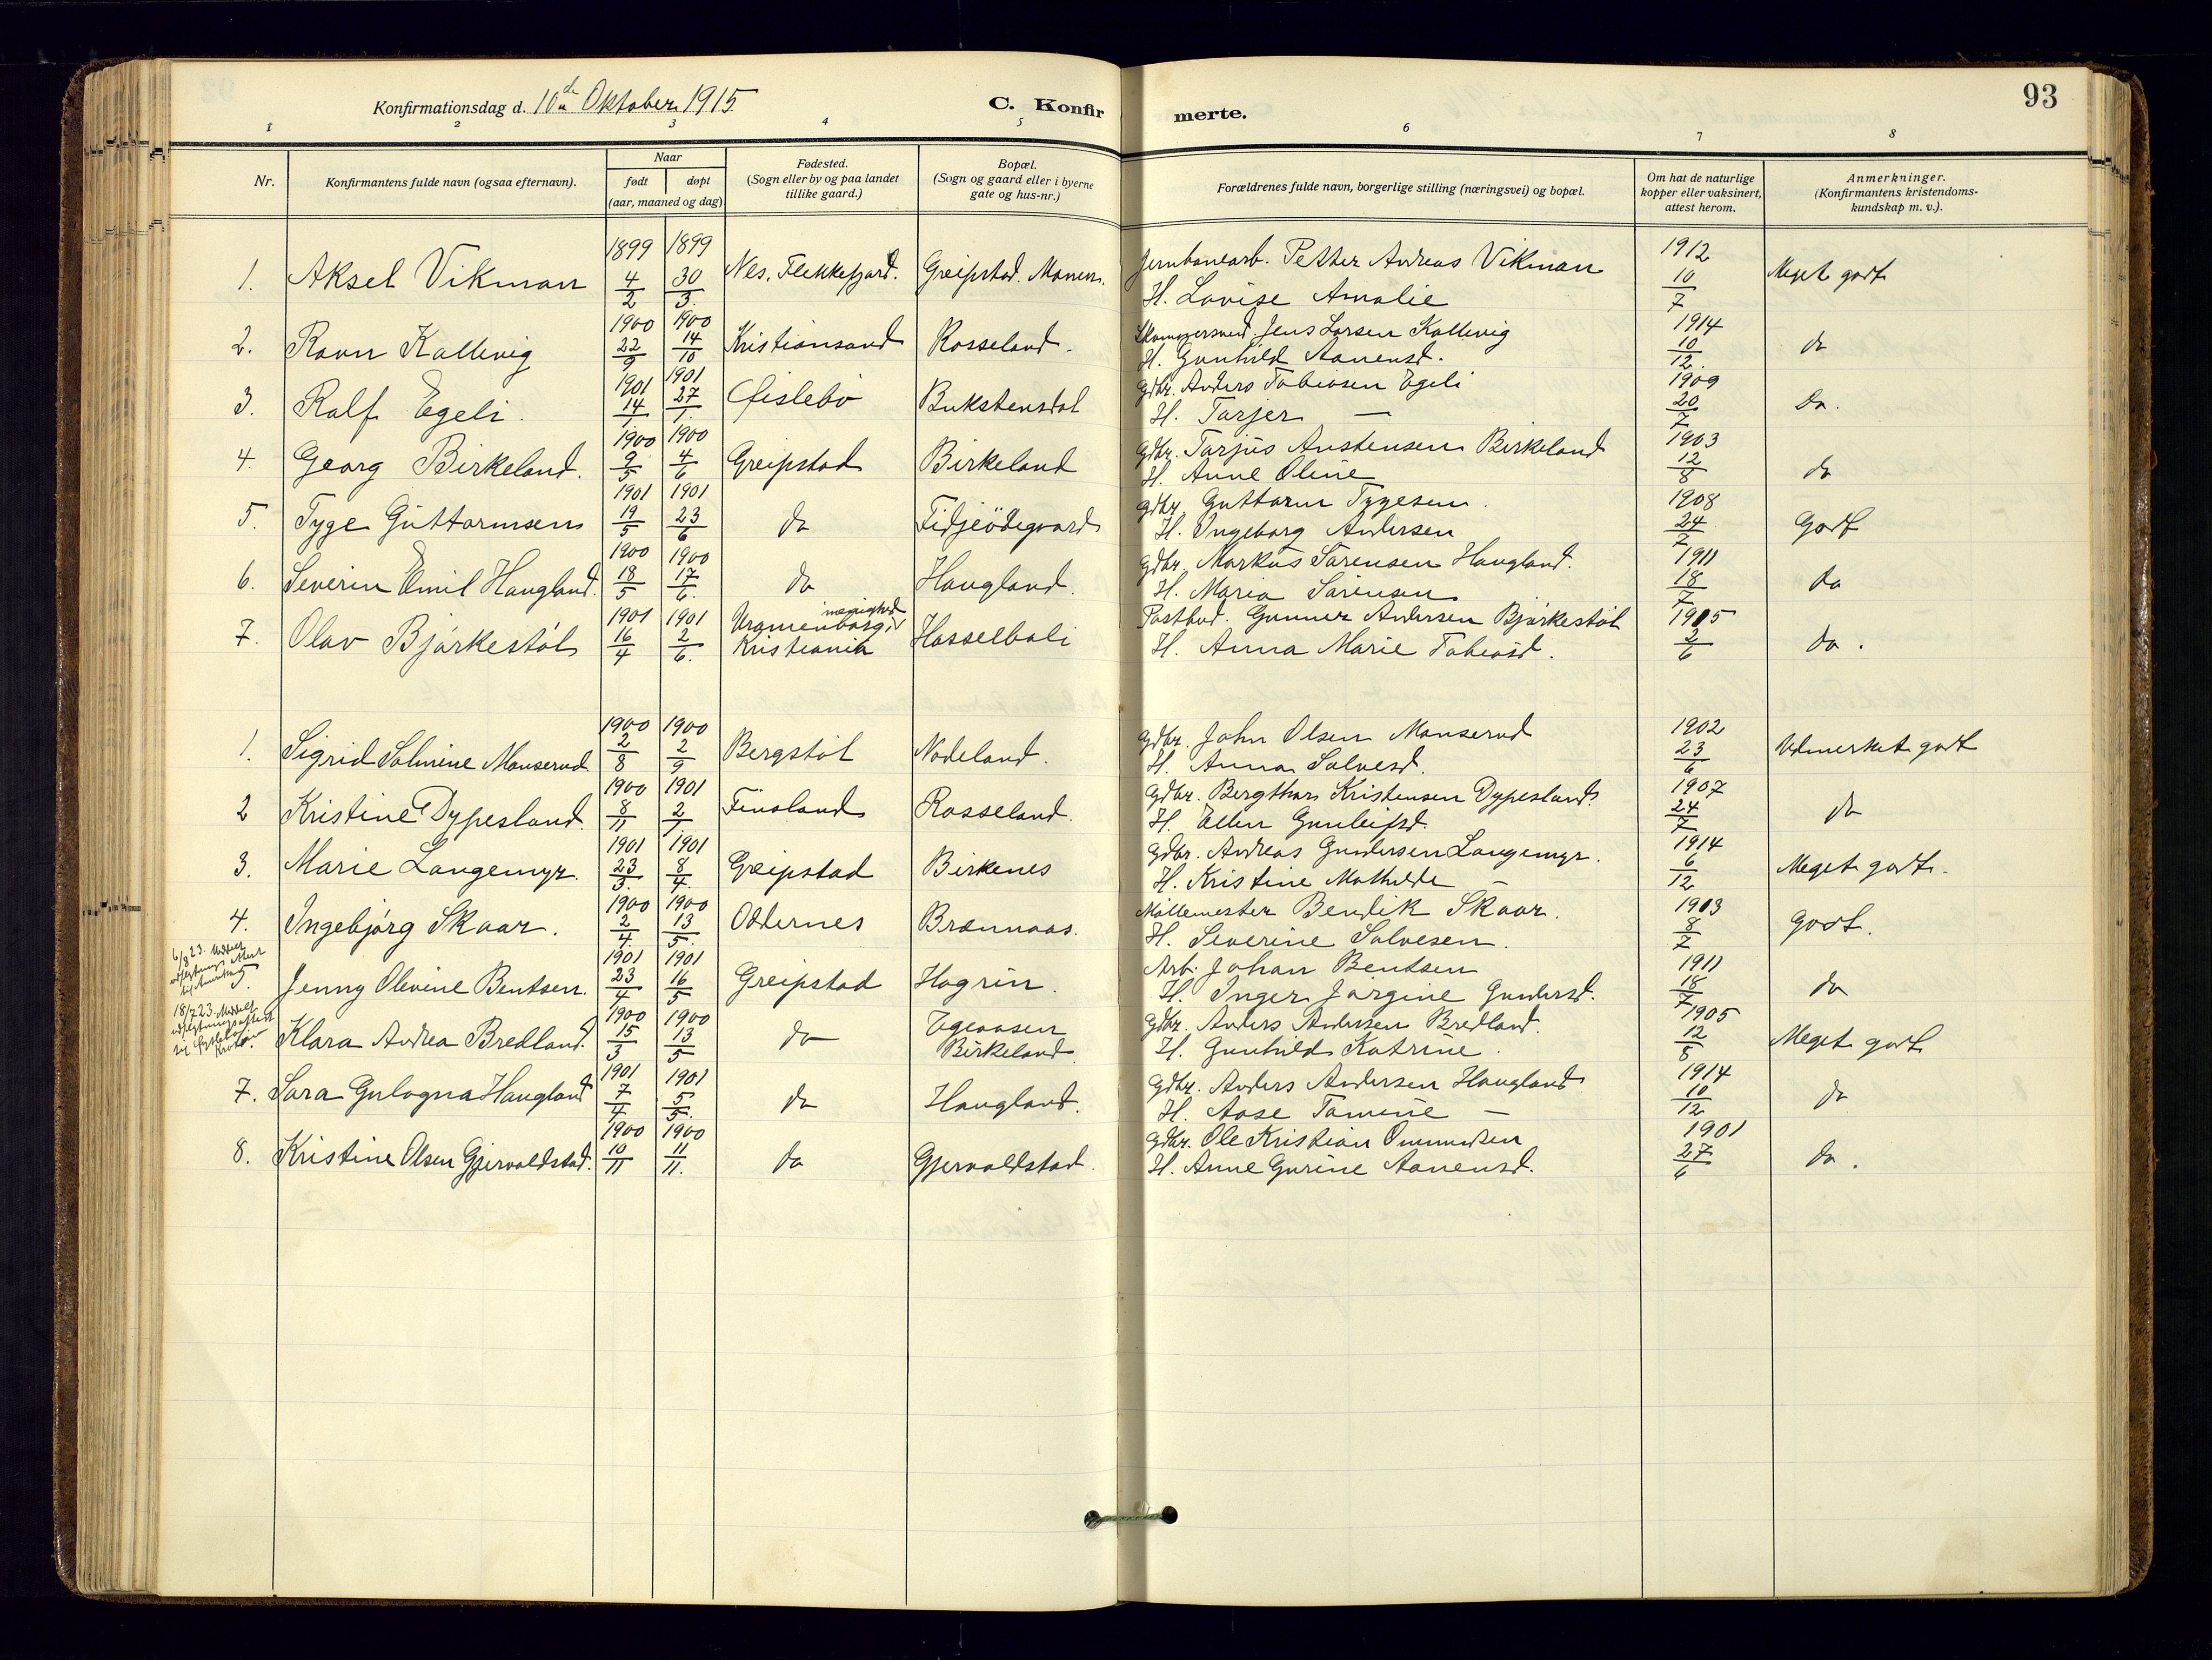 93
Konfirmationsdag d. 10de Oktober 1915
C. Konfirmerte.
1 2 3 4 5 6 7 8
Nr.
Konfirmantens fulde navn (ogsaa efternavn).
Naar
født døpt
(aar, maaned og dag)
Fødested.
(Sogn eller by og paa landet
tillike gaard.)
Bopæl.
(Sogn og gaard eller i byerne
gate og hus-nr.)
Forældrenes fulde navn, borgerlige stilling (næringsvei) og bopæl.
Om hat de naturlige
kopper eller vaksinert,
attest herom.
Anmerkninger.
(Konfirmantens kristendoms-
kundskap m. v.).
1. Aksel Vikman 1899 4/2 1899 30/3. Nes, Flekkefjord. Greipstad. Monen. Jernbanearb. Petter Andreas Vikman 1912 10/7 Meget godt
H. Lovise Amalie
2. Ravn Kallevig 1900 22/9 1900 14/10 Kristiansand Rosseland. Jens Larsen Kallevig 1914 10/12. do
H. Gunhild Aanensd.
3. Ralf Egeli. 1901 14/1 1901 27/1. Øislebö Bukstensdal Gdbr. Anders Tobiasen Egeli 1909 20/7 do.
H. Tarjer —
4. Georg Birkeland. 1900 9/5 1900 4/6 Greipstad Birkeland Gdbr. Tarjus Anstensen Birkeland 1903 12/8 do
H. Anne Oline
5. Tyge Guttormsen 1901 19/5 1901 23/6 do Fidjeödegaard Gdbr. Guttorm Tygesen. 1908 24/7 Godt
H. Ingeborg Andersen
6. Severin Emil Haugland. 1900 18/5 1900 17/6. do Haugland. Gdbr. Markus Sörensen Haugland. 1911 18/7 do
H. Maria Sörensen
7. Olav Björkestöl 1901 16/4 1901 2/6. Uranienborg menighed i Kristiania Hasselbali Postbud. Gunnar Andersen Björkestöl 1905 2/6 do.
H. Anna Marie Tobiasd.
1. Sigrid Solmine Monserud 1900 2/8 1900 2/9 Bergstöl Nodeland. Gdbr. John Olsen Monserud 1902 23/6 Udmerket godt
H. Anna Salvesd.
2 Kristine Dypesland. 1900 8/11 1901 2/1 Finsland Rosseland. Gdbr. Bergthor Kristensen Dypesland. 1907 24/7 do
H. Ellen Gunleifsd.
3. Marie Langemyr. 1901 23/3. 1901 8/4. Greipstad Birkenes Gdbr. Andreas Gundersen Langemyr. 1914 6/12 Meget godt.
H. Kristine Mathilde —
4. Ingebjörg Skaar. 1900 2/4. 1900 13/5. Oddernes Brennaas. Möllemester Bendik Skaar. 1903 8/7 Godt.
H. Severine Salvesen.
6/8 23.
5. Jenny Olevine Bentsen. 1901 23/4 1901 16/5 Greipstad Hagrin. Arb. Johan Bentsen 1911 18/7 do
H. Inger Jörgine Gundersd.
18/7 23. Meddelt
Klara Andrea Bredland. 1900 15/3 1900 13/5 do Egeaasen Birkeland. Gdbr. Anders Andersen Bredland. 1905 12/8 Meget godt
H. Gunhild Katrine.
7. Sara Gulogna Haugland 1901 7/4 1901 5/5. do Haugland. Gdbr. Anders Andersen Haugland 1914 10/12 do
H. Aase Tomine —
8. Kristine Olsen Gjervoldstad. 1900 10/11 1900 11/11. do Gjervoldstad. Gdbr. Ole Kristian Ommundsen 1901 27/6 do.
H. Anne Gurine Aanensd.